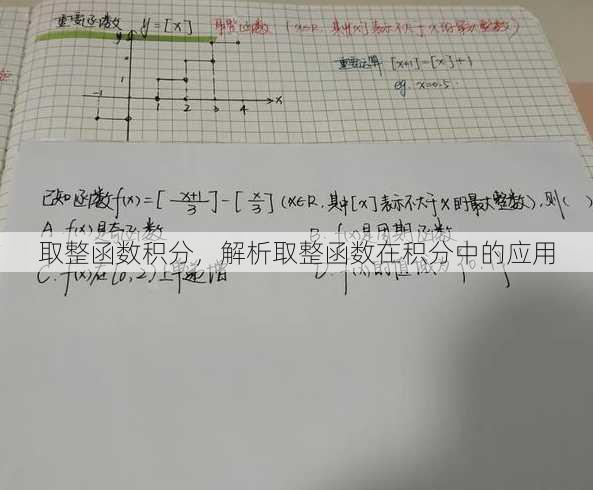 重要函数 y=[x] 取整函数 (x∈R,其中[x]表示不大于x的最大整数)
重要运算 [x+1]=[x]+1
eg. x=0.5
y
1
-1 1 2 3 4 x
已知函数f(x)=[x+1/3]-[x/3](x∈R,其中[x]表示不大于x的最大整数),则( )
A. f(x)是奇函数 B. f(x)是周期函数
取整函数积分,解析取整函数在积分中的应用
C. f(x)在(0,2)上单调递增 D. f(x)的值域为